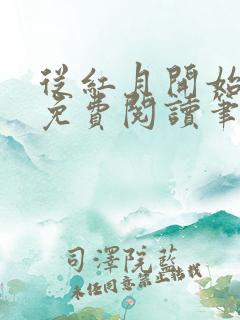 從紅月開始
免費閱讀筆
司澤院藍
未經同意禁止轉載